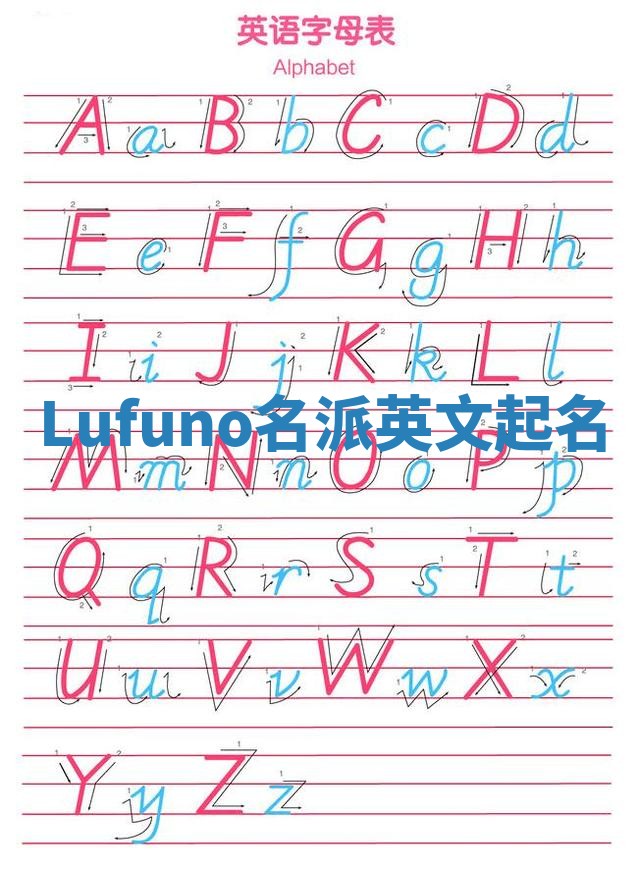 英语字母表
Alphabet
A a B b C c D d
E e F f G g H h
I i J j K k L l
Lufuno名派英文起名
M m N n O o P p
Q q R r S s T t
U u V v W w X x
Y y Z z